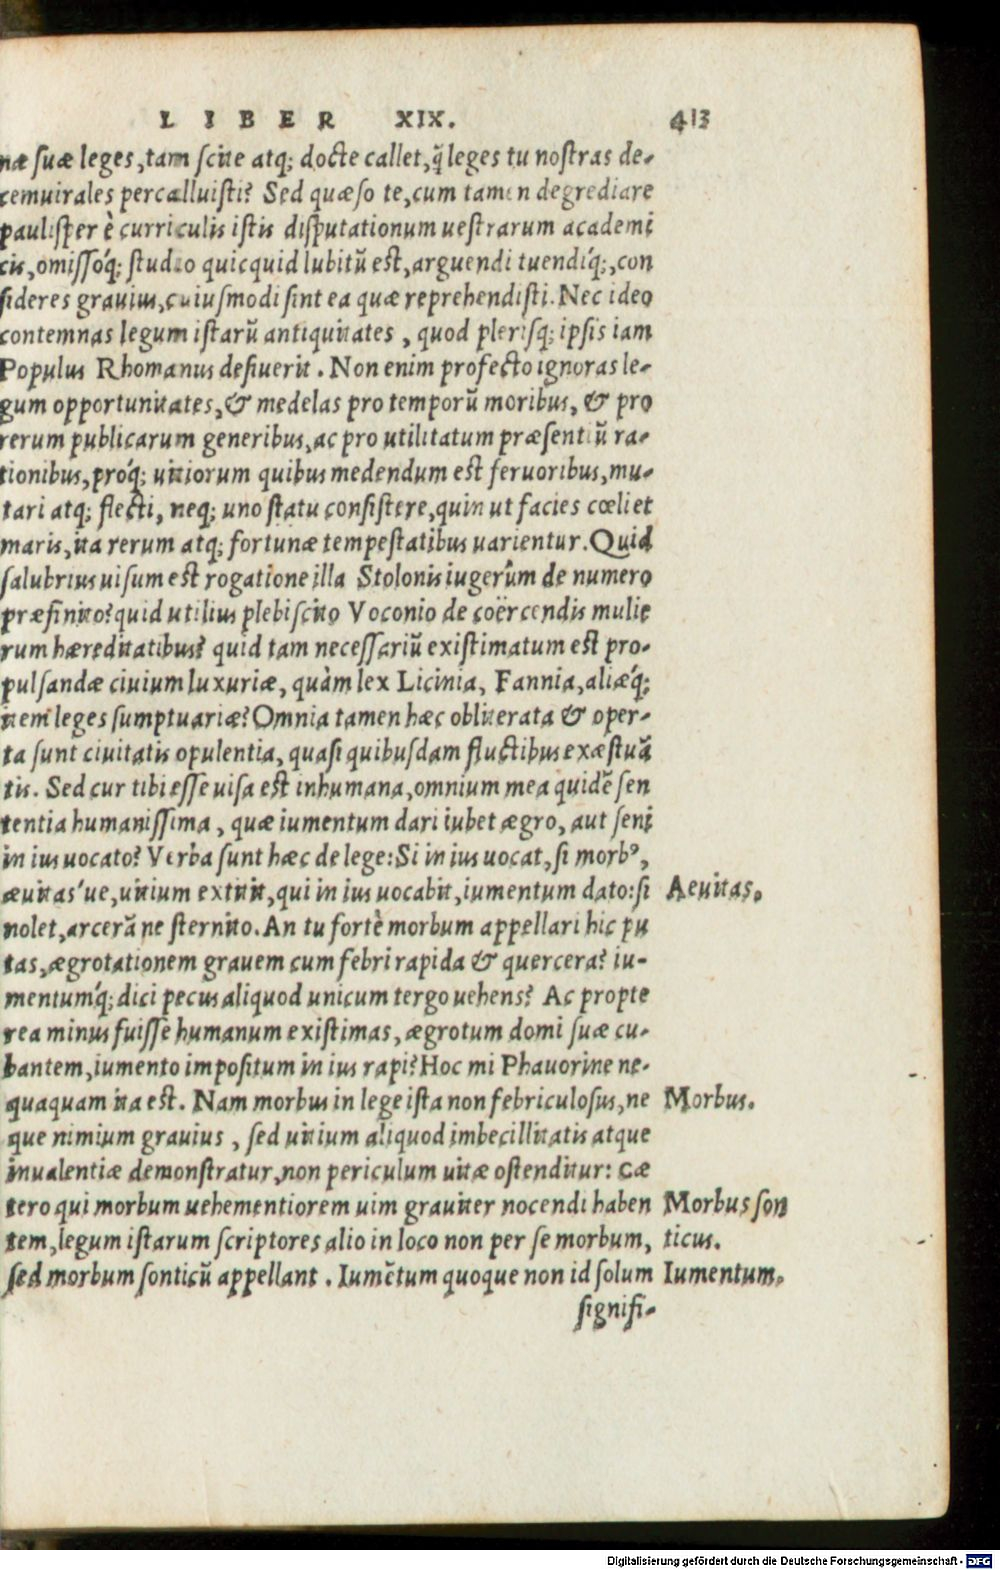 LIBER XIX. 413
næ suæ leges, tam scite atq; docte callet, q̃ leges tu nostras de-
cemuirales percalluisti? Sed quæso te, cum tamen degrediare
paulisper è curriculis istis disputationum uestrarum academi
cis, omissóq; studio quicquid lubitũ est, arguendi tuendíq;, con
sideres grauius, cuiusmodi sint ea quæ reprehendisti. Nec ideo
contemnas legum istarũ antiquitates, quod plerisq; ipsis iam
Populus Rhomanus desiuerit. Non enim profecto ignoras le-
gum opportunitates, & medelas pro temporũ moribus, & pro
rerum publicarum generibus, ac pro utilitatum præsentiũ ra-
tionibus, próq; uitiorum quibus medendum est feruoribus, mu-
tari atq; flecti, neq; uno statu consistere, quin ut facies cœli et
maris, ita rerum atq; fortunæ tempestatibus uarientur. Quid
salubrius uisum est rogatione illa Stolonis iugerûm de numero
præfinito? quid utilius plebiscito Voconio de coërcendis mulie
rum hæreditatibus? quid tam necessariũ existimatum est pro-
pulsandæ ciuium luxuriæ, quàm lex Licinia, Fannia, aliæq́;
item leges sumptuariæ? Omnia tamen hæc obliterata & oper-
ta sunt ciuitatis opulentia, quasi quibusdam fluctibus exæstuã
tis. Sed cur tibi esse uisa est inhumana, omnium mea quidẽ sen
tentia humanissima, quæ iumentum dari iubet ægro, aut seni
in ius uocato? Verba sunt hæc de lege: Si in ius uocat, si morbꝰ,
æuitas'ue, uitium extitit, qui in ius uocabit, iumentum dato: si Aeuitas.
nolet, arcerã ne sternito. An tu fortè morbum appellari hic pu
tas, ægrotationem grauem cum febri rapida & quercera? iu-
mentumq́; dici pecus aliquod unicum tergo uehens? Ac propte
rea minus fuisse humanum existimas, ægrotum domi suæ cu-
bantem, iumento impositum in ius rapi? Hoc mi Phauorine ne-
quaquam ita est. Nam morbus in lege ista non febriculosus, ne Morbus.
que nimium grauius, sed uitium aliquod imbecillitatis atque
inualentiæ demonstratur, non periculum uitæ ostenditur: cæ
tero qui morbum uehementiorem uim grauiter nocendi haben Morbus son
tem, legum istarum scriptores alio in loco non per se morbum, ticus.
sed morbum sonticũ appellant. Iumẽtum quoque non id solum Iumentum.
signifi-
Digitalisierung gefördert durch die Deutsche Forschungsgemeinschaft - DFG